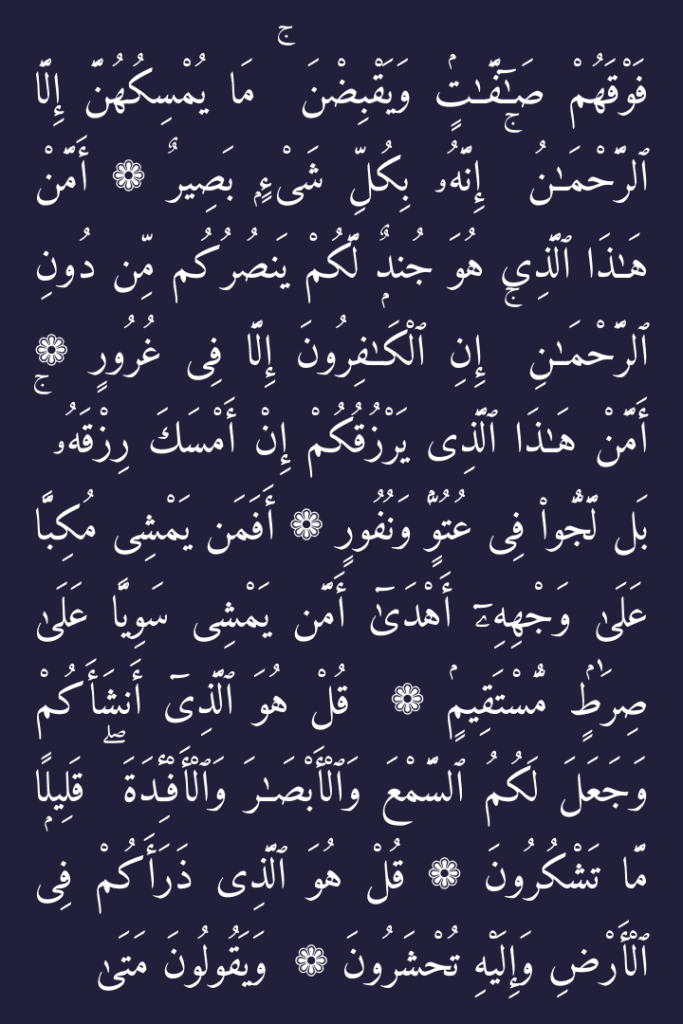 فَوْقَهُمْ صَـٰٓفَّـٰتٍۢ وَيَقْبِضْنَ ۚ مَا يُمْسِكُهُنَّ إِلَّا
ٱلرَّحْمَـٰنُ ۚ إِنَّهُۥ بِكُلِّ شَىْءٍۭ بَصِيرٌ ۝ أَمَّنْ
هَـٰذَا ٱلَّذِى هُوَ جُندٌۭ لَّكُمْ يَنصُرُكُم مِّن دُونِ
ٱلرَّحْمَـٰنِ ۚ إِنِ ٱلْكَـٰفِرُونَ إِلَّا فِى غُرُورٍ ۝
أَمَّنْ هَـٰذَا ٱلَّذِى يَرْزُقُكُمْ إِنْ أَمْسَكَ رِزْقَهُۥ ۚ
بَل لَّجُّوا۟ فِى عُتُوٍّۢ وَنُفُورٍ ۝ أَفَمَن يَمْشِى مُكِبًّا
عَلَىٰ وَجْهِهِۦٓ أَهْدَىٰٓ أَمَّن يَمْشِى سَوِيًّا عَلَىٰ
صِرَٰطٍۢ مُّسْتَقِيمٍۢ ۝ قُلْ هُوَ ٱلَّذِىٓ أَنشَأَكُمْ
وَجَعَلَ لَكُمُ ٱلسَّمْعَ وَٱلْأَبْصَـٰرَ وَٱلْأَفْـِٔدَةَ ۖ قَلِيلًۭا
مَّا تَشْكُرُونَ ۝ قُلْ هُوَ ٱلَّذِى ذَرَأَكُمْ فِى
ٱلْأَرْضِ وَإِلَيْهِ تُحْشَرُونَ ۝ وَيَقُولُونَ مَتَىٰ